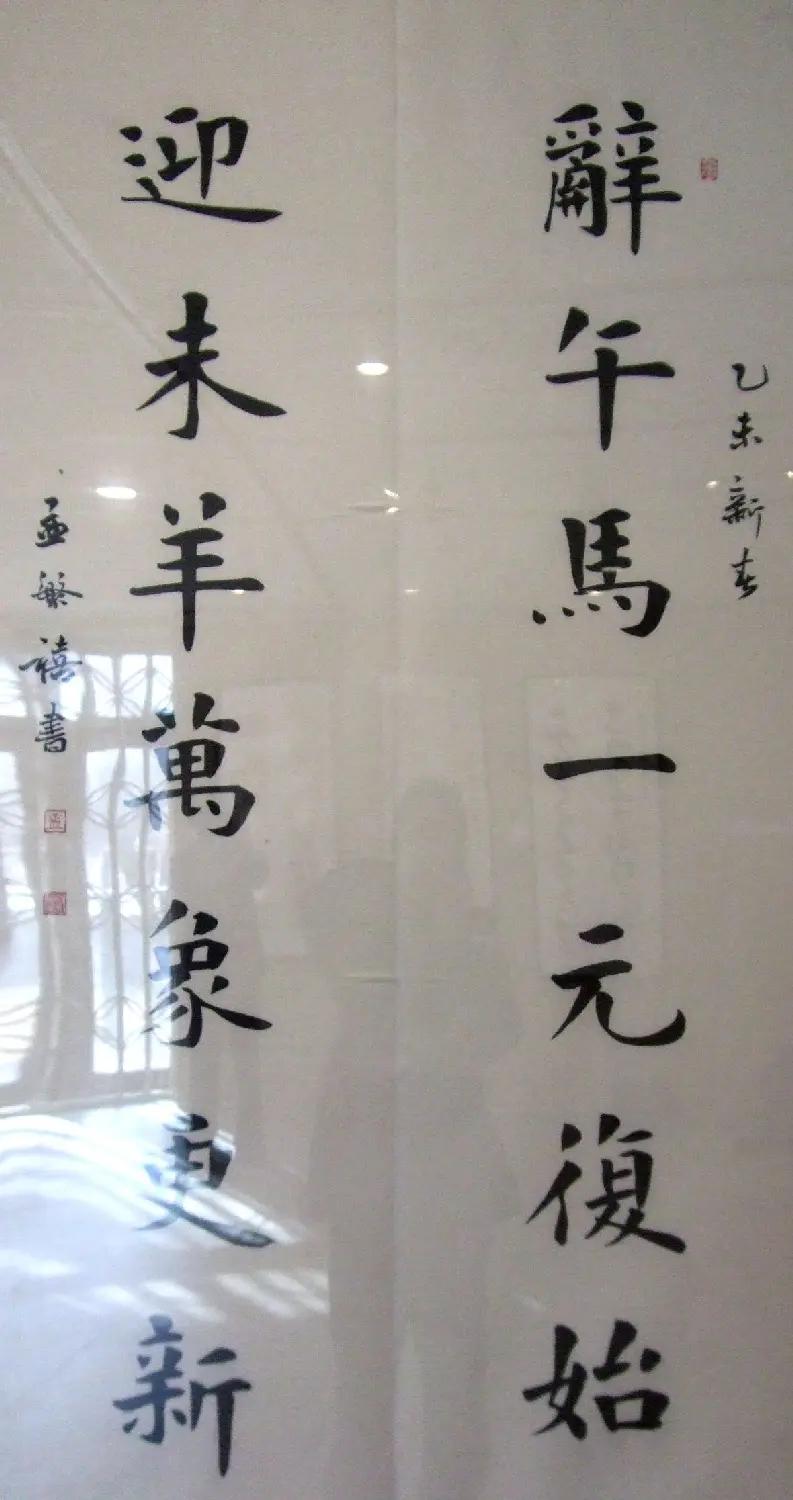 乙未新春
辭午馬一元復始
迎未羊萬象更新
孟繁禧書